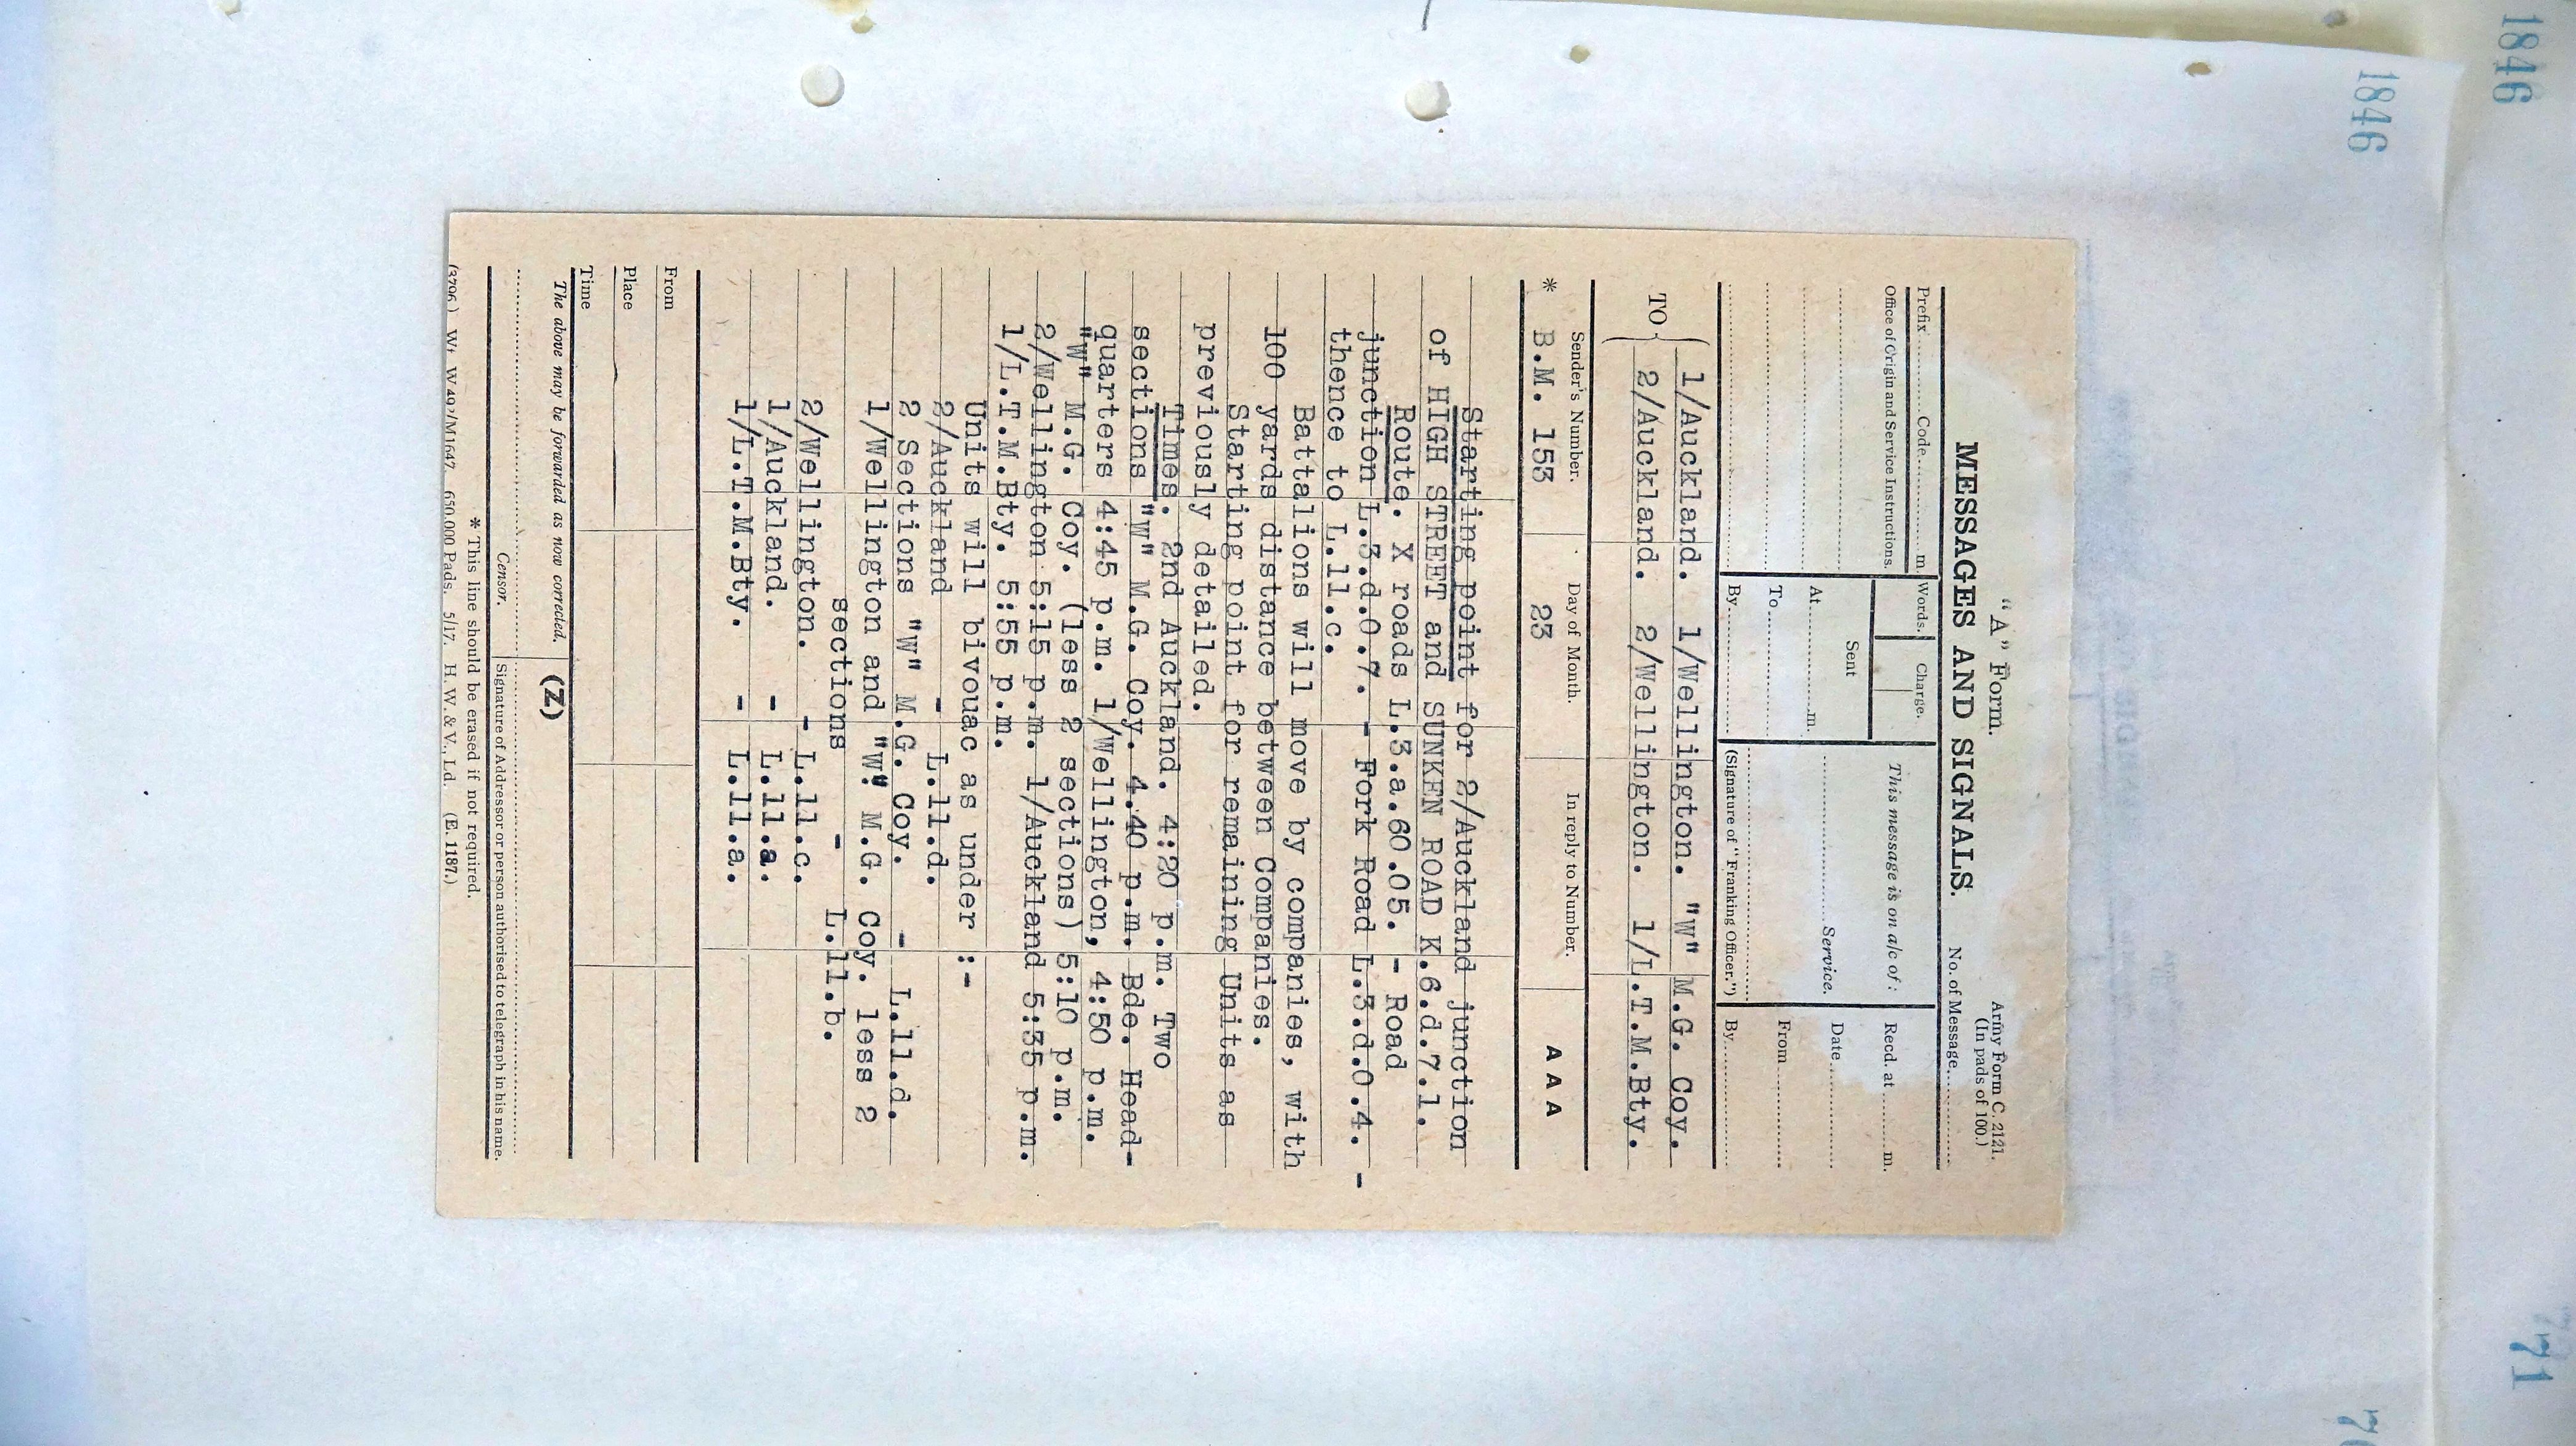 1846
1846
"A" Form.
Army Form C. 2121.
(In pads of 100.)
MESSAGES AND SIGNALS.
No. of Message
Prefix Code m.
Words.
Charge.
This message is on a/c of:
Recd. at m.
Office of Origin and Service Instructions.
Sent
Service.
Date
At m.
From
To
By
(Signature of "Franking Officer.")
By
TO
1/Auckland. 1/Wellington. "W" M.G. Coy.
2/Auckland. 2/Wellington. 1/L.T.M.Bty.
Sender's Number.
Day of Month.
In reply to Number.
A A A
* B.M. 153
23
Starting point for 2/Auckland junction
of HIGH STREET and SUNKEN ROAD K.6.d.7.1.
Route. X roads L.3.a.60.05. - Road
junction L.3.d.0.7. - Fork Road L.3.d.0.4. -
thence to L.11.c.
Battalions will move by companies, with
100 yards distance between Companies.
Starting point for remaining Units as
previously detailed.
Times. 2nd Auckland. 4:20 p.m. Two
sections "W" M.G. Coy. 4.40 p.m. Bde. Head-
quarters 4:45 p.m. 1/Wellington, 4:50 p.m.
"W" M.G. Coy. (less 2 sections) 5:10 p.m.
2/Wellington 5:15 p.m. 1/Auckland 5:35 p.m.
1/L.T.M.Bty. 5:55 p.m.
Units will bivouac as under :-
2/Auckland - L.11.d.
2 Sections "W" M.G. Coy. - L.11.d.
1/Wellington and "W" M.G. Coy. less 2
sections - L.11.b.
2/Wellington. - L.11.c.
1/Auckland. - L.11.a.
1/L.T.M.Bty. - L.11.a.
From
Place
Time
The above may be forwarded as now corrected.
(Z)
Censor.
Signature of Addressor or person authorised to telegraph in his name.
* This line should be erased if not required.
(3796) Wt W492/M1647. 650,000 Pads. 5/17. H. W. & V., Ld. (E. 1187.)
71